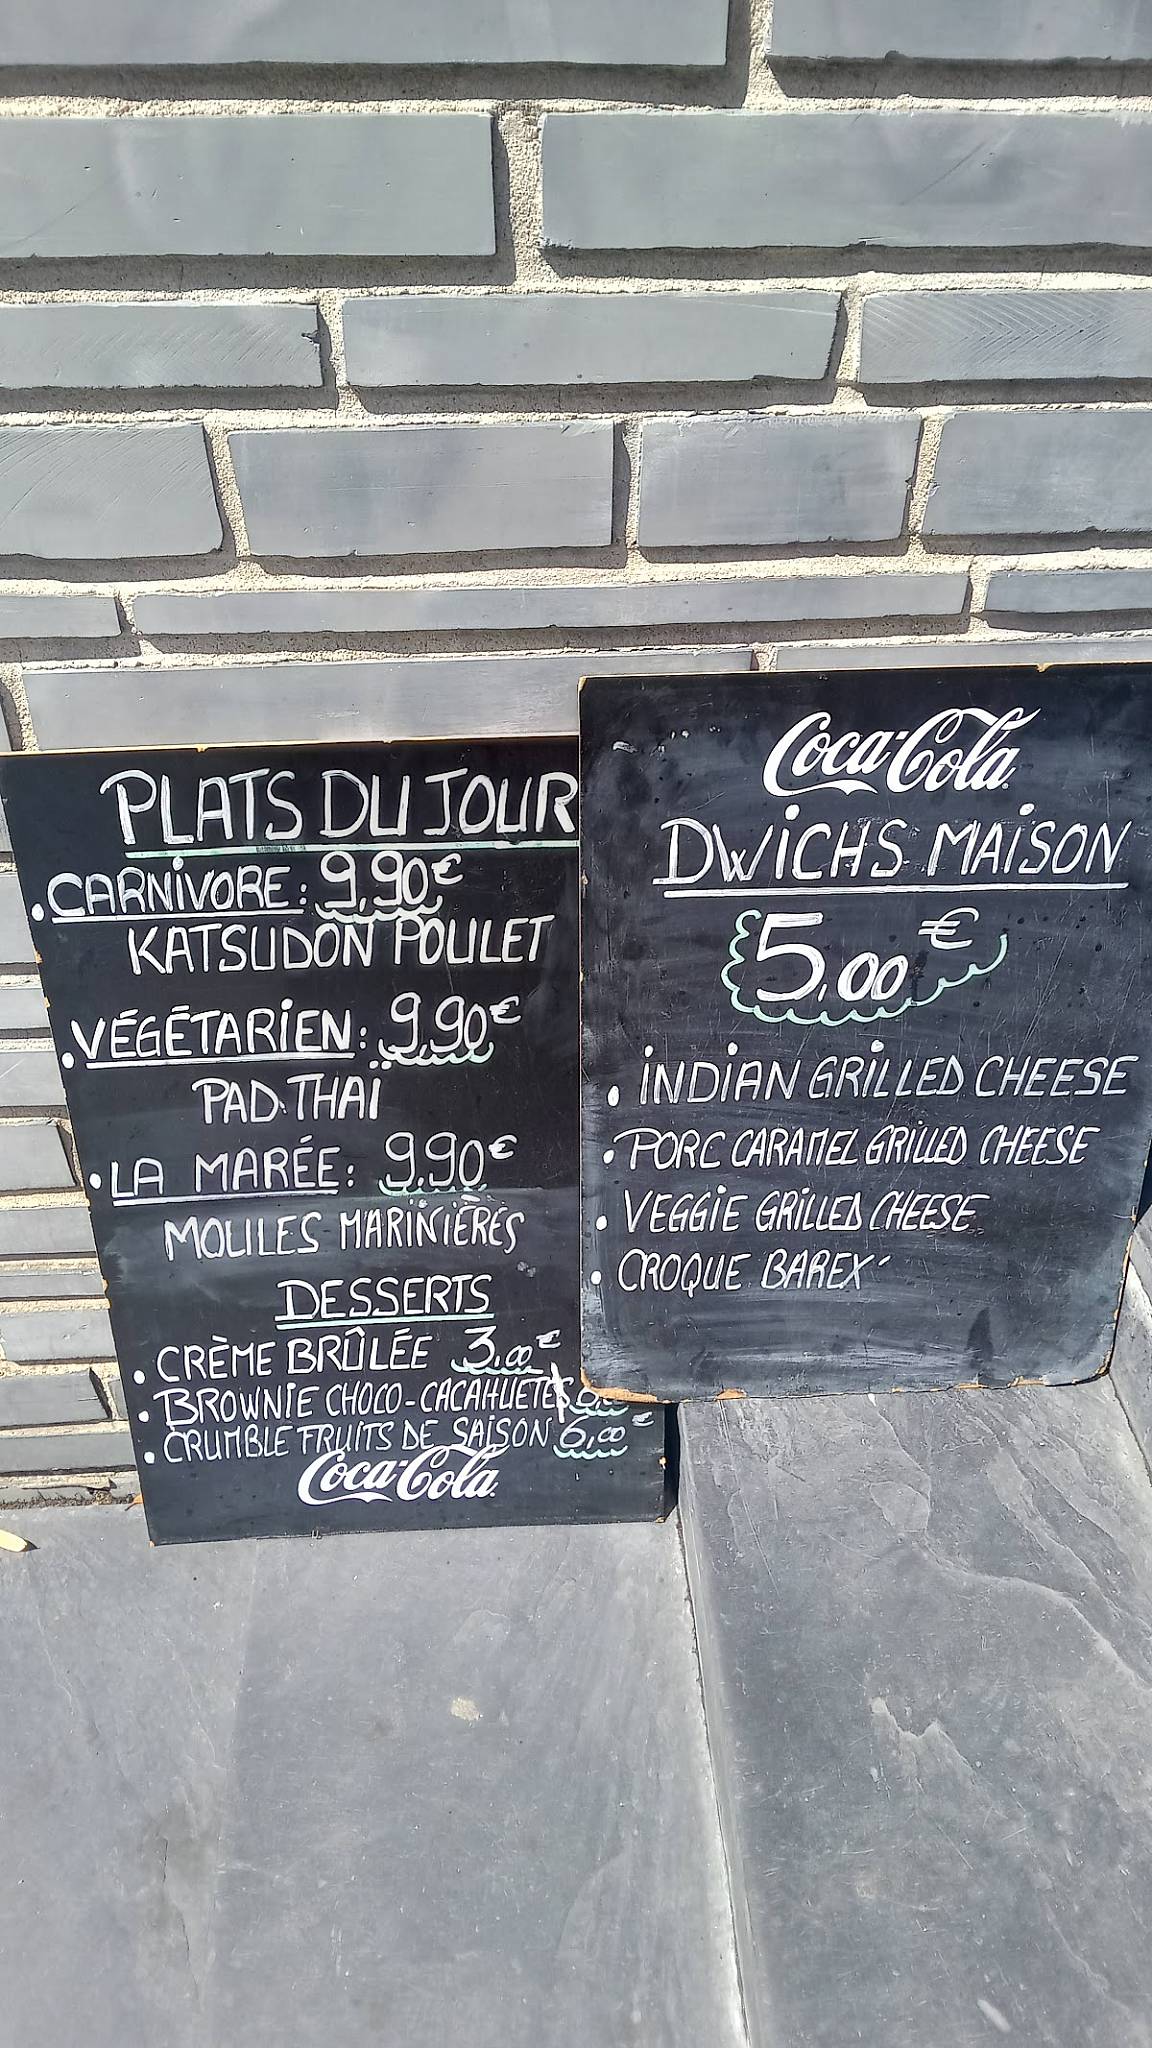 PLATS DU JOUR
• CARNIVORE : 9,90€
KATSUDON POULET
• VÉGÉTARIEN : 9,90€
PAD THAÏ
• LA MARÉE : 9,90€
MOULES MARINIÈRES
DESSERTS
• CRÈME BRÛLÉE 3,00€
• BROWNIE CHOCO-CACAHUETES
• CRUMBLE FRUITS DE SAISON 6,00€
Coca-Cola
Coca-Cola
DWICHS MAISON
5,00€
• INDIAN GRILLED CHEESE
• PORC CARAMEL GRILLED CHEESE
• VEGGIE GRILLED CHEESE
• CROQUE BAREX'